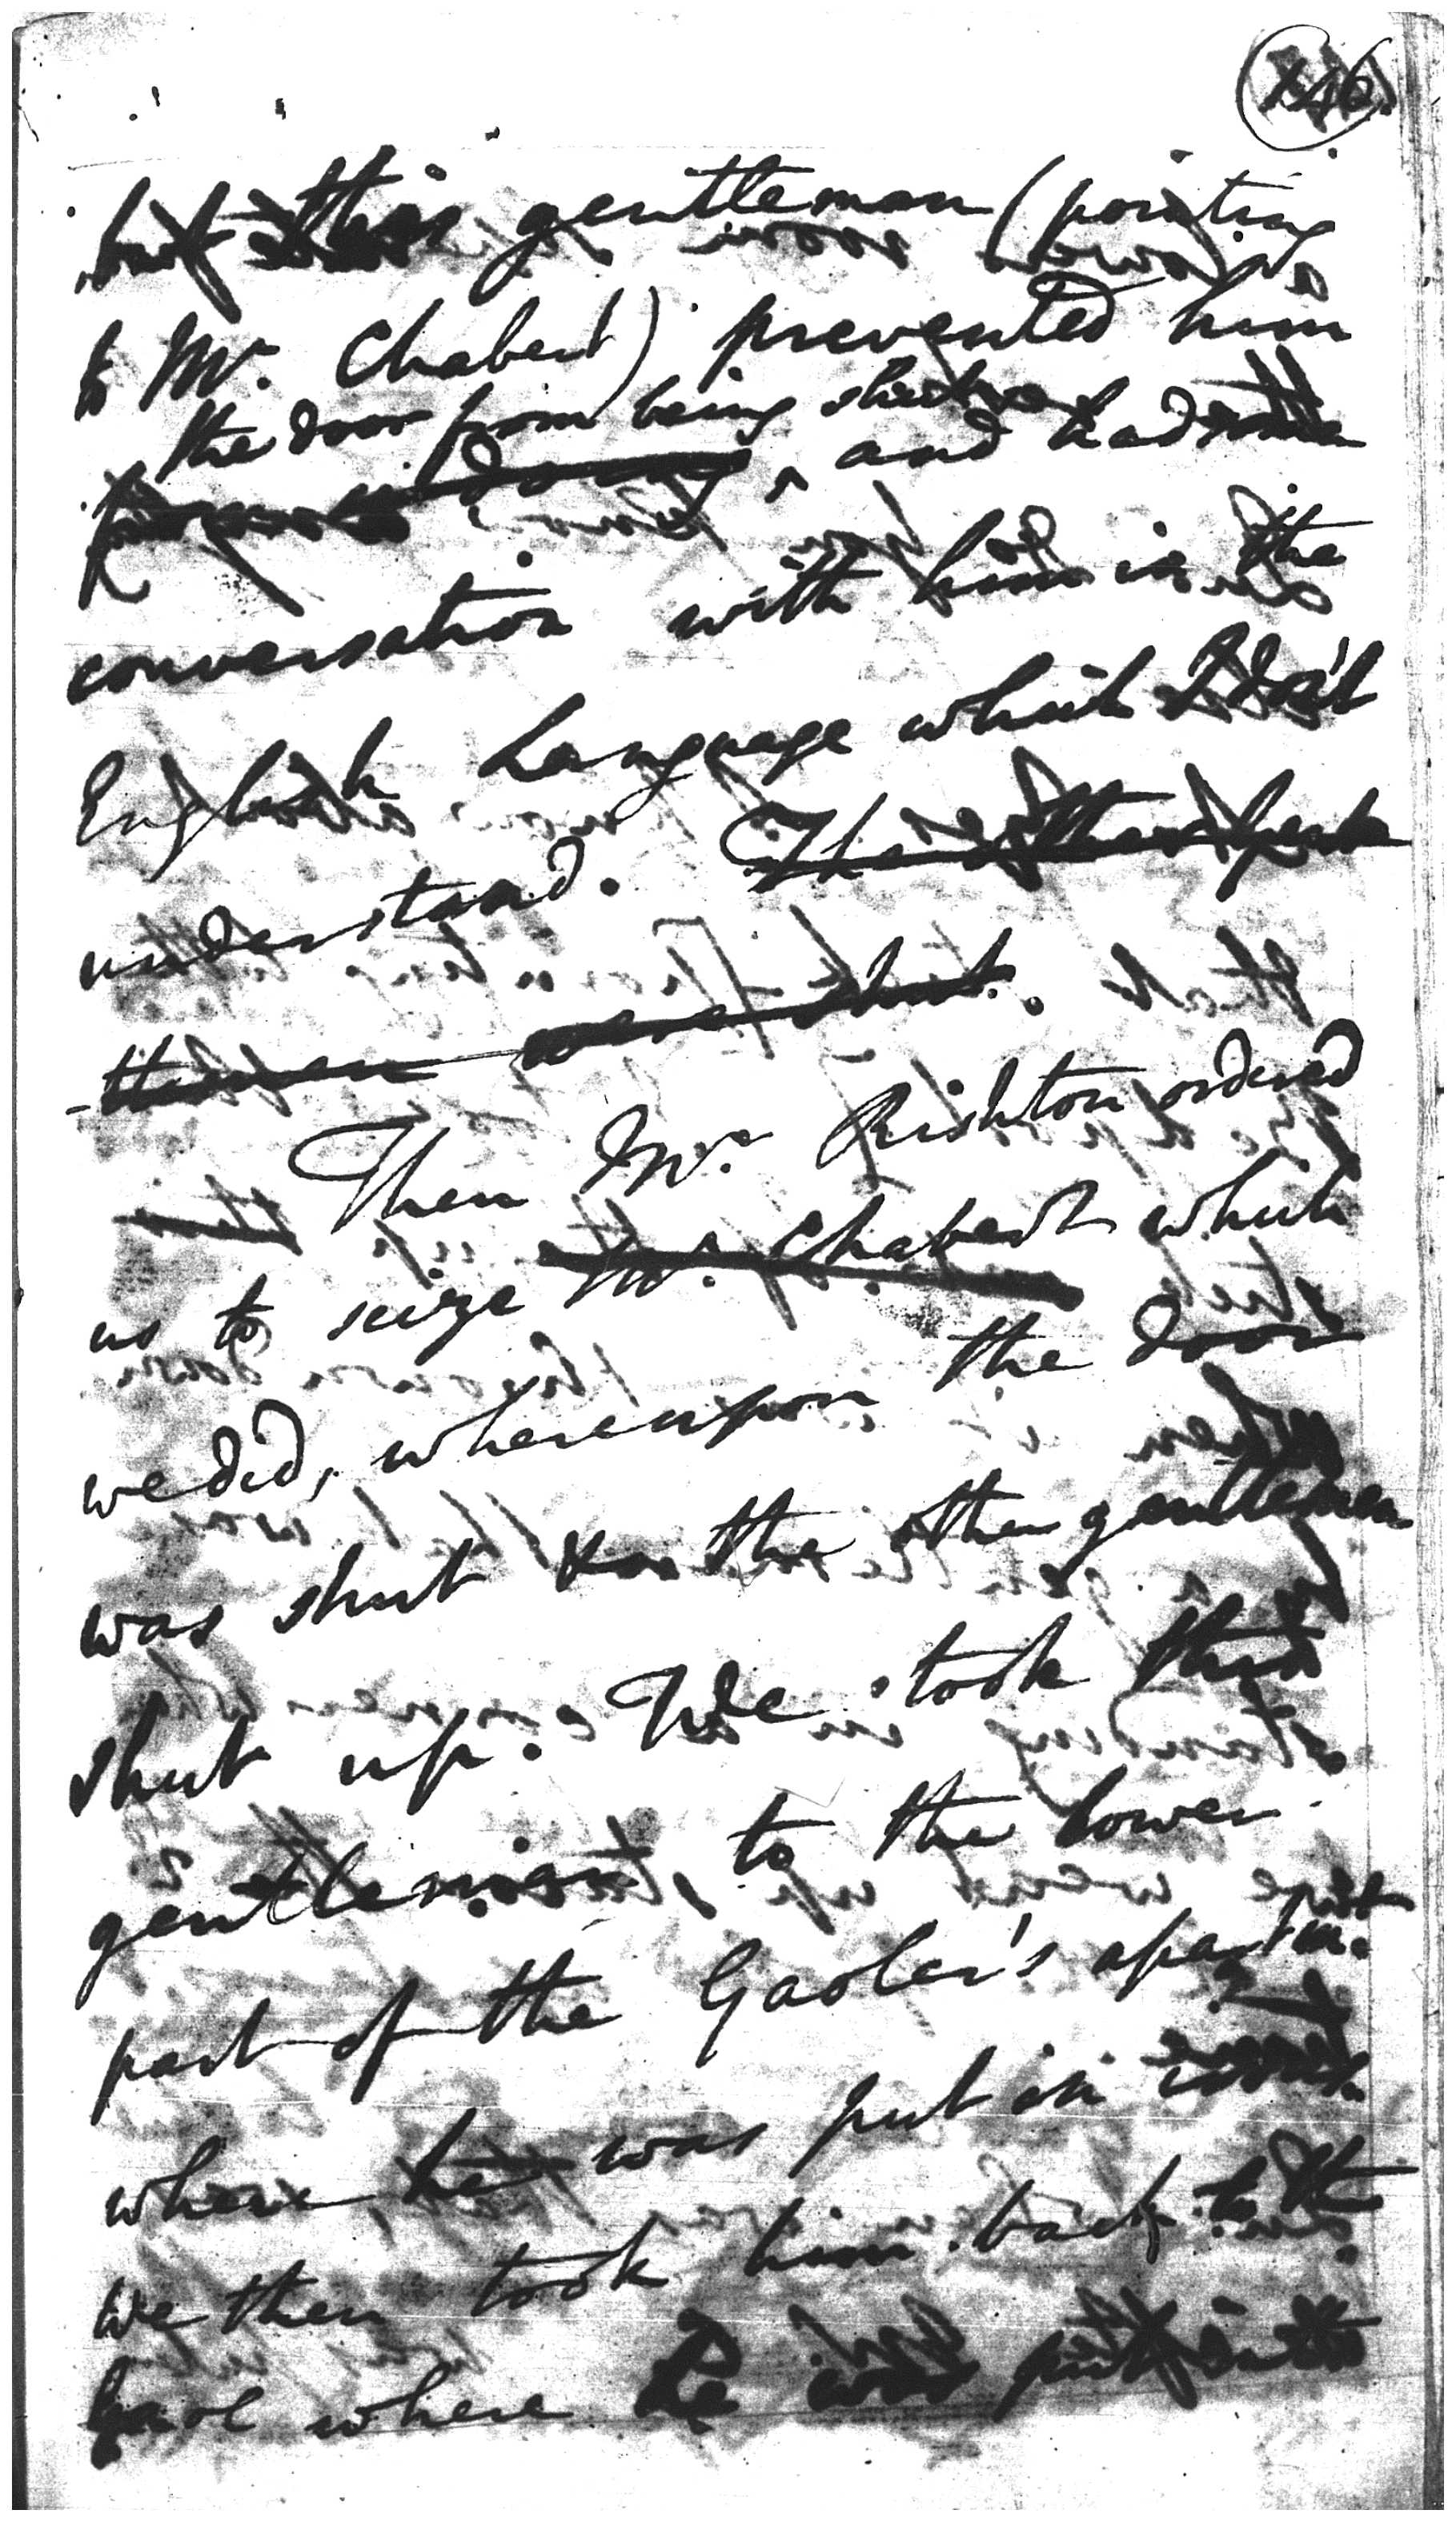 146
but this gentleman (pointing
to Mr. Chabert) prevented him
the door from being shut
doing, and had some
conversation with him in the
English Language which I don't
understand. The other
were shut.
Then Mr. Rishton ordered
us to seize Mr. Chabert which
we did, whereupon the door
was shut & the other gentlemen
shut up. We took this
gentleman to the lower
part of the Gaoler's apartmt.
where he was put in irons.
We then took him back to the
Gaol where he was put in the